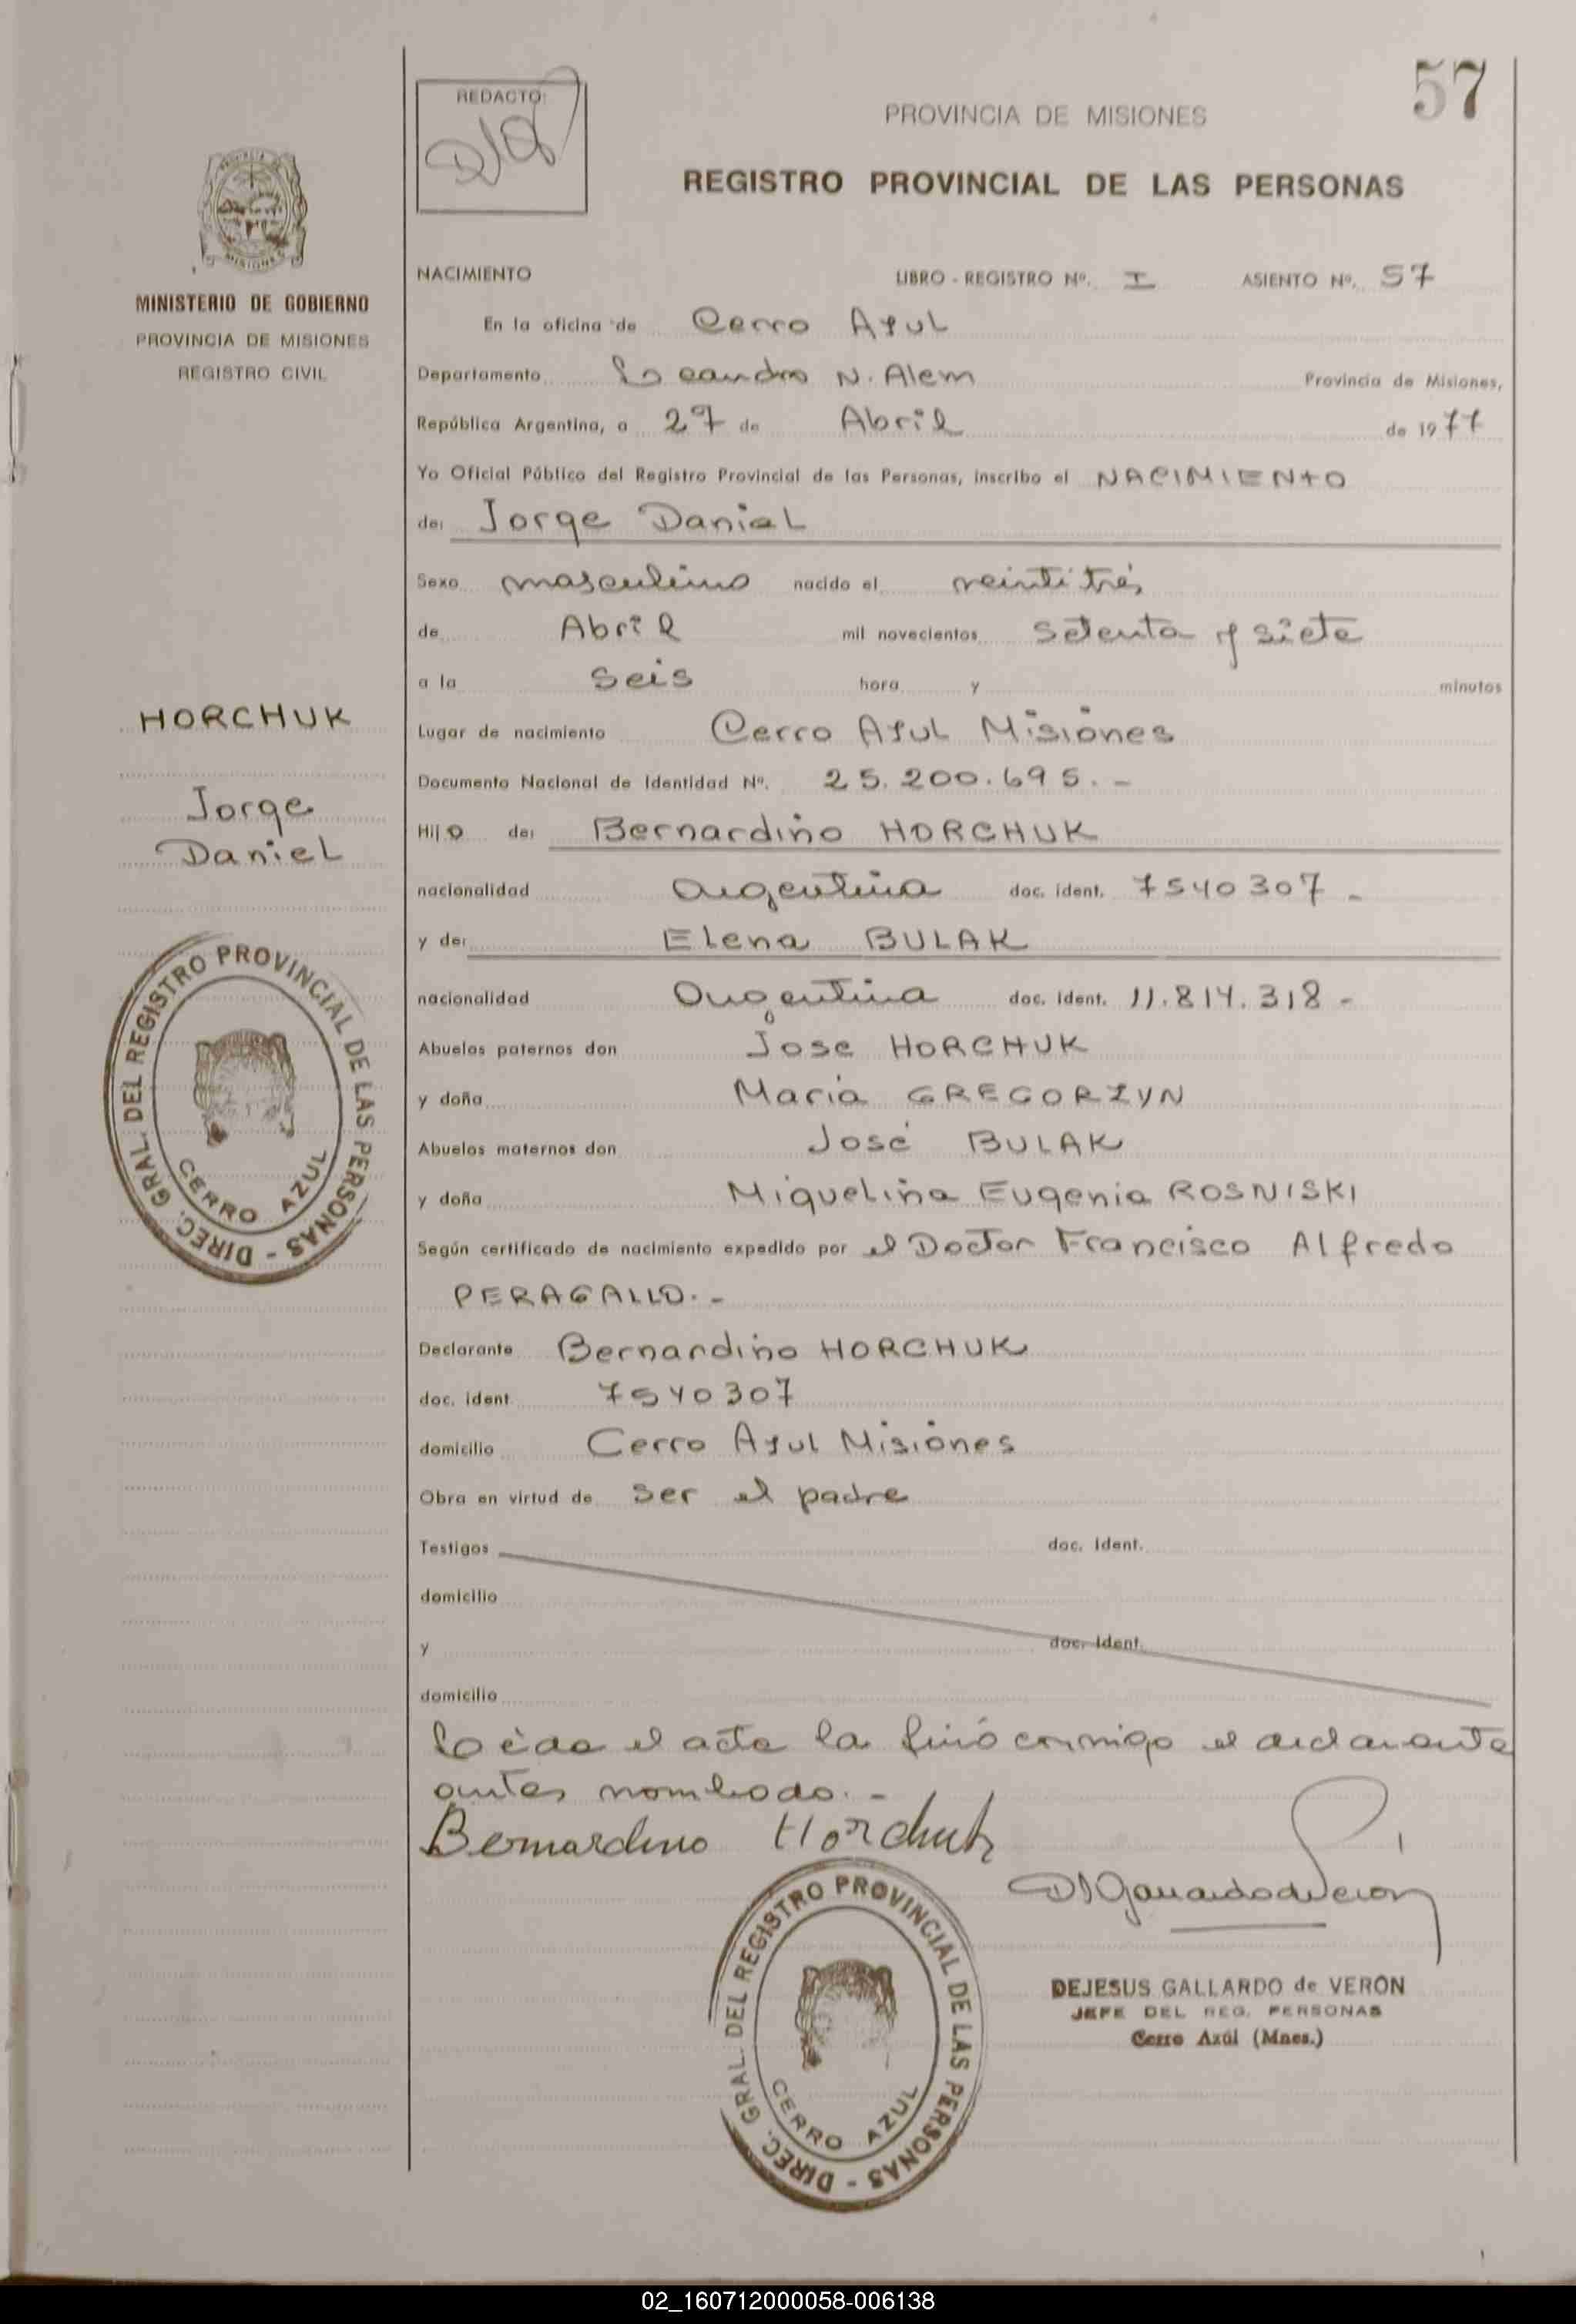 57
REDACTO:
PROVINCIA DE MISIONES
REGISTRO PROVINCIAL DE LAS PERSONAS
MISIONES
MINISTERIO DE GOBIERNO
PROVINCIA DE MISIONES
REGISTRO CIVIL
HORCHUK
Jorge
Daniel
DIREC. GRAL. DEL REGISTRO PROVINCIAL DE LAS PERSONAS -
CERRO AZUL
NACIMIENTO LIBRO - REGISTRO Nº. I ASIENTO Nº. 57
En la oficina de Cerro Azul
Departamento Leandro N. Alem Provincia de Misiones,
República Argentina, a 27 de Abril de 1977
Yo Oficial Público del Registro Provincial de las Personas, inscribo el NACIMIENTO
de: Jorge Daniel
Sexo masculino nacido el veintitrés
de Abril mil novecientos setenta y siete
a la seis hora y minutos
Lugar de nacimiento Cerro Azul Misiones
Documento Nacional de Identidad Nº. 25.200.695.-
Hijo de: Bernardino HORCHUK
nacionalidad argentina doc. ident. 7540307 -
y de: Elena BULAK
nacionalidad Argentina doc. ident. 11.814.318 -
Abuelos paternos don José HORCHUK
y doña María GREGORZYN
Abuelos maternos don José BULAK
y doña Miguelina Eugenia ROSNISKI
Según certificado de nacimiento expedido por el Doctor Francisco Alfredo
PERAGALLO.-
Declarante Bernardino HORCHUK
doc. ident. 7540307
domicilio Cerro Azul Misiones
Obra en virtud de ser el padre
Testigos doc. ident.
domicilio
y doc. ident.
domicilio
Leída el acta la firmó conmigo el declarante
antes nombrado.-
Bernardino Horchuk
DIREC. GRAL. DEL REGISTRO PROVINCIAL DE LAS PERSONAS -
CERRO AZUL
DEJESUS GALLARDO de VERON
JEFE DEL REG. PERSONAS
Cerro Azúl (Mnes.)
02_160712000058-006138